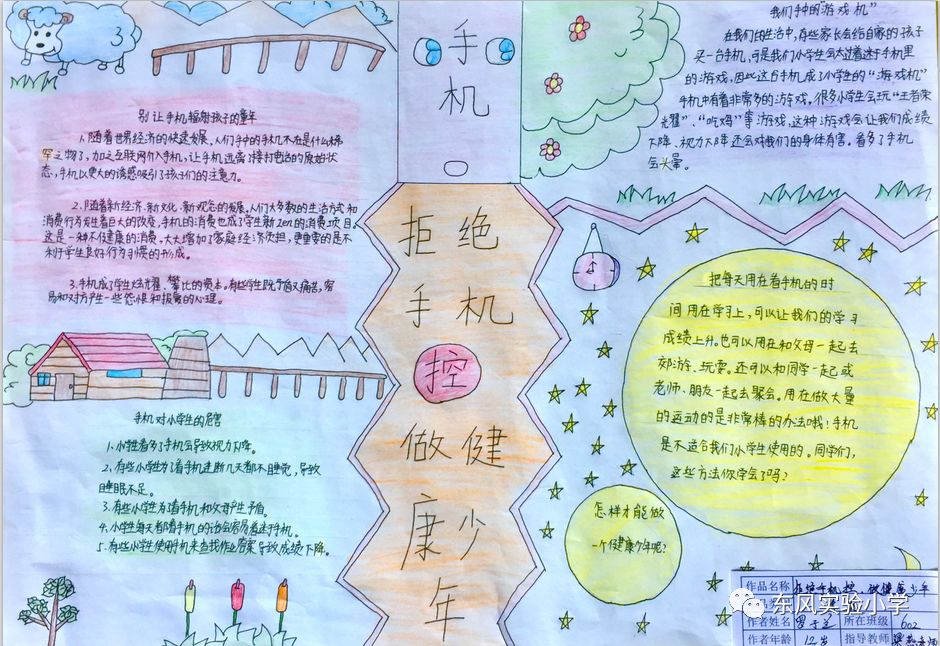 手机
拒绝
手机
控
做健
康少
年
别让手机辐射孩子的童年
1.随着世界经济的快速发展,人们手中的手机不在是什么稀
罕之物了,加之互联网介入手机,让手机远离了接打电话的原始状
态,手机以更大的诱惑吸引了孩子们的注意力。
2.随着新经济、新文化、新观念的发展。人们大多数的生活方式和
消费行为发生着巨大的改变,手机的消费也成了学生新的消费项目。
这是一种不健康的消费。大大增加了家庭经济负担,更重要的是不
利于学生良好行为习惯的形成。
3.手机成了学生炫耀、攀比的资本。有些学生既矛盾又痛苦,容
易和对方产生一些怨恨和报复的心理。
手机对小学生的危害
1.小学生看多了手机会导致视力下降。
2.有些小学生为了看手机连断几天都不睡觉,导致
睡眠不足。
3.有些小学生为了看手机和父母产生矛盾。
4.小学生每天都看手机的话会容易着迷于手机。
5.有些小学生使用手机来查找作业答案导致成绩下降。
我们手中的“游戏机”
在我们的生活中,有些家长会给自家的孩子
买一台手机,可是我们小学生会太过着迷于手机里
的游戏,因此这台手机成了小学生的“游戏机”
手机中有着非常多的游戏。很多小学生会玩“王者荣
光耀”、“吃鸡”等游戏,这种游戏会让我们成绩
下降、视力下降还会对我们的身体有害。看多了手机
会头晕。
把每天用在看手机的时
间用在学习上,可以让我们的学习
成绩上升。也可以用在和父母一起去
郊游、玩耍。还可以和同学一起或
老师、朋友一起去聚会。用在做大量
的运动的是非常棒的办法哦!手机
是不适合我们小学生使用的。同学们,
这些方法你学会了吗?
怎样才能做
一个健康少年呢?
作品名称 拒绝手机控、做健康少年
东风实验小学
作者姓名 所在班级 602
作者年龄 12岁 指导教师